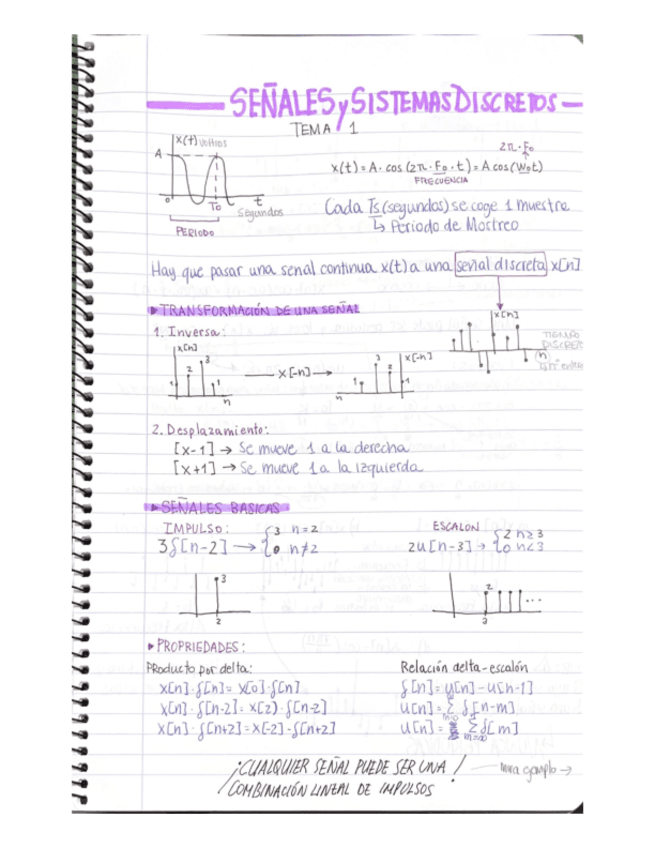 SEÑALES y SISTEMAS DISCRETOS
TEMA 1
x(t) voltios
A
0
To
t
Segundos
PERIODO
2π·Fo
x(t) = A· cos (2π·Fo·t) = A cos(Wot)
FRECUENCIA
Cada Ts (segundos) se coge 1 muestra
↳ Periodo de Mostreo
Hay que pasar una senal continua x(t) a una señal discreta x[n]
▶ TRANSFORMACIÓN DE UNA SEÑAL
x[n]
TIEMPO
DISCRETO
(n)
1. Inversa:
x[n]
1 2 3 1
n
— x[-n] →
x[-n]
1 3 2 1
n
2. Desplazamiento:
[x-1] → Se mueve 1 a la derecha
[x+1] → Se mueve 1 a la izquierda
▶ SEÑALES BASICAS
IMPULSO:
3δ[n-2] → { 3 n=2
0 n≠2
3
2
ESCALON
2u[n-3] → { 2 n≥3
0 n<3
2
...
3
▶ PROPRIEDADES:
Producto por delta:
x[n]·δ[n] = x[0]·δ[n]
x[n]·δ[n-2] = x[2)·δ[n-2]
x[n]·δ[n+2] = x[-2]·δ[n+2]
Relación delta-escalón
δ[n] = u[n] - u[n-1]
u[n] = Σ δ[n-m]
u[n] = Σ δ[m]
¡CUALQUIER SEÑAL PUEDE SER UNA
COMBINACIÓN LINEAL DE IMPULSOS!
mira ejemplo →